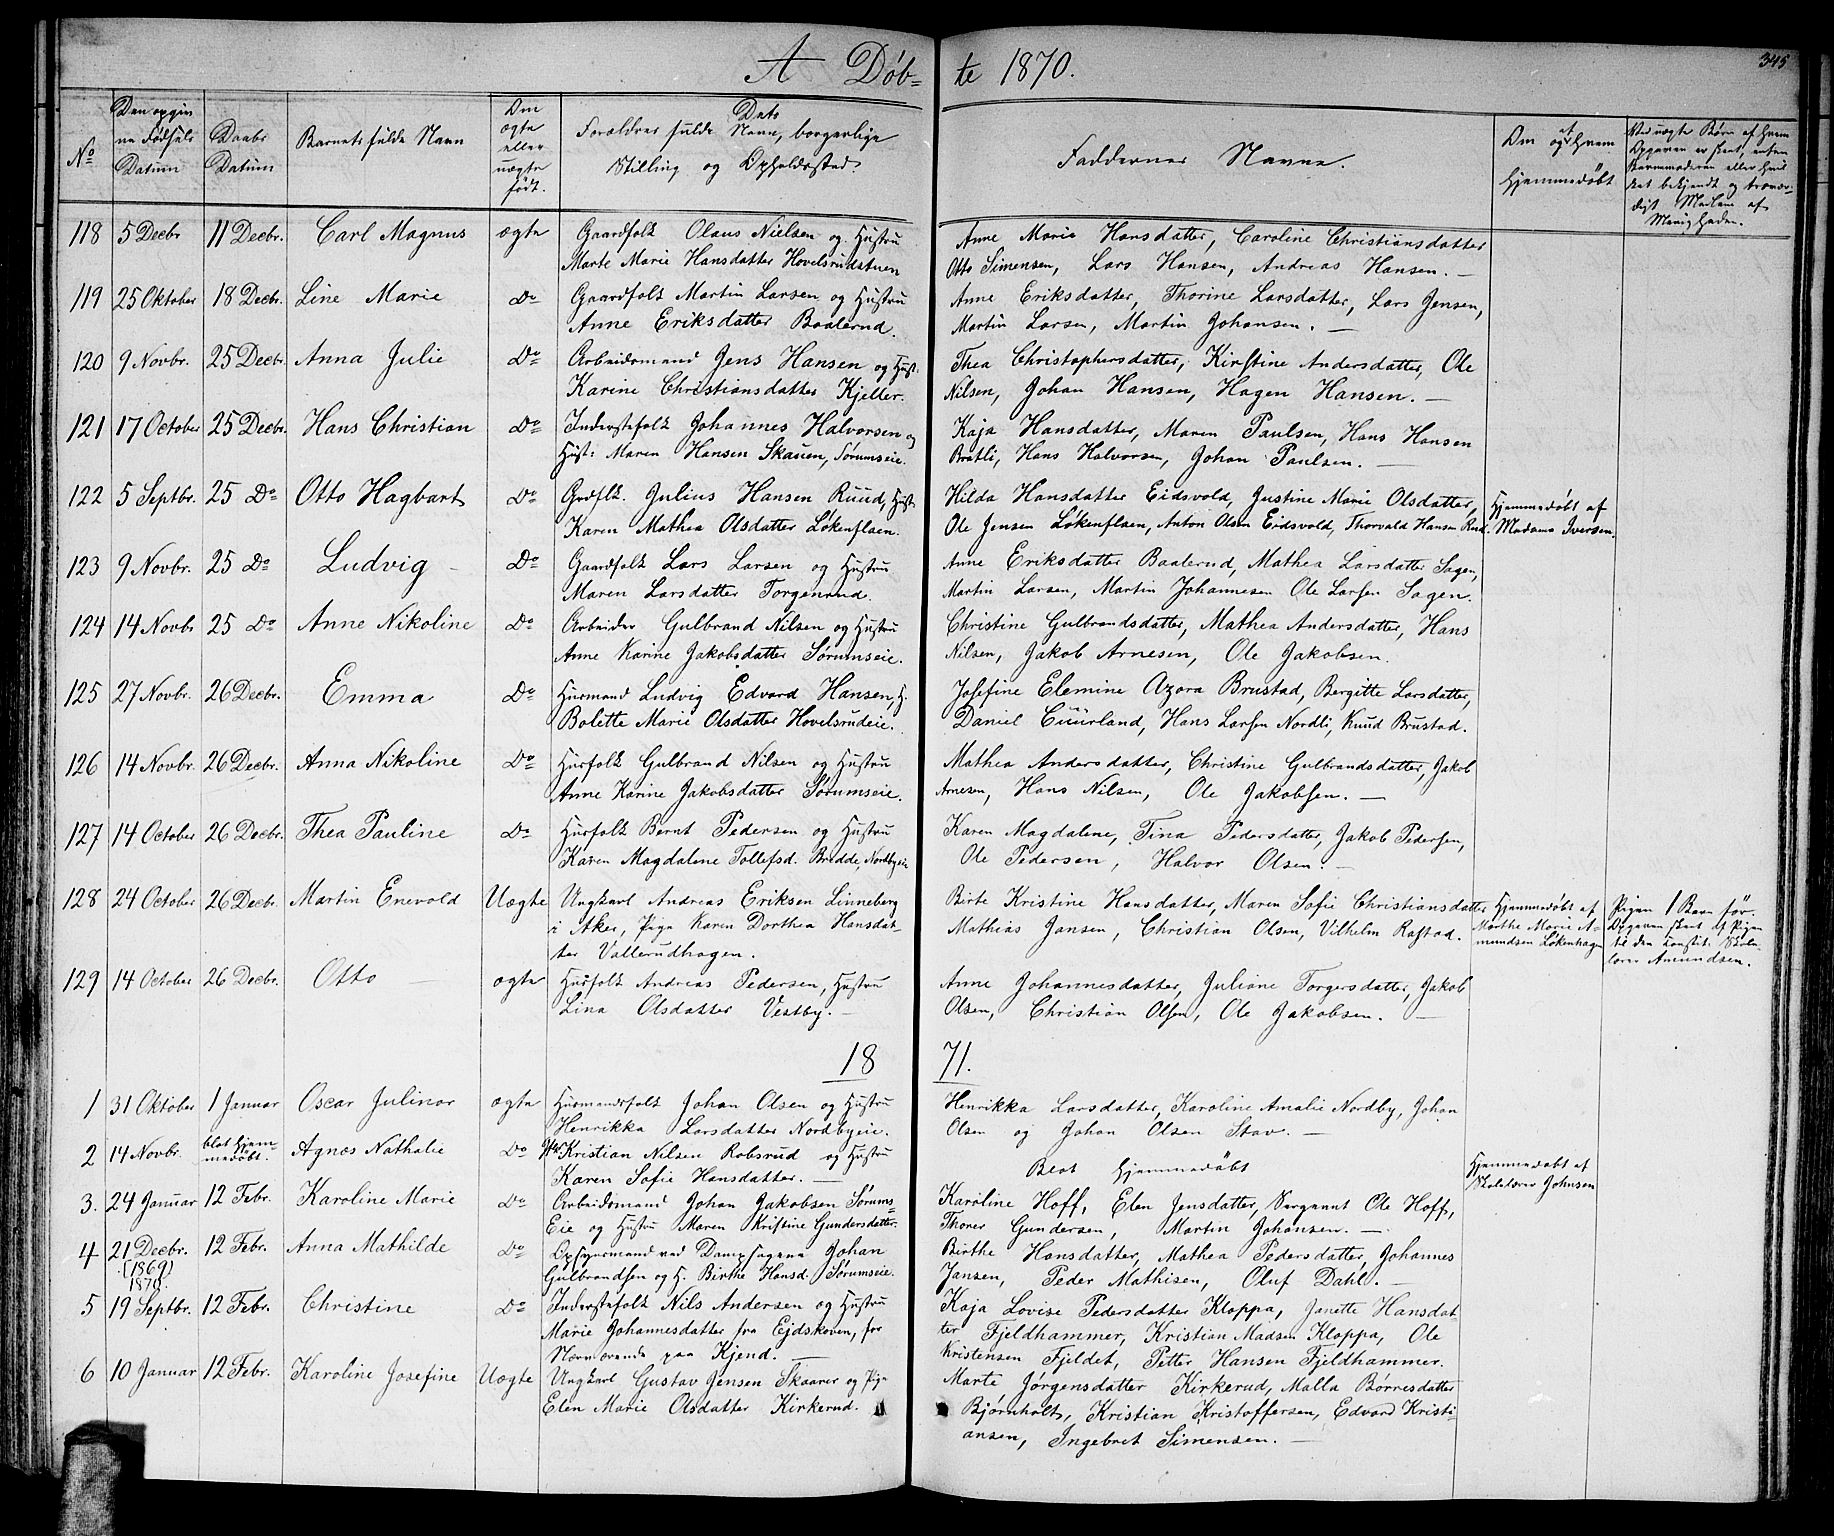 A Døb-
te 1870.
345
No
Den opgivne Fødsels Datum
Daabs Datum
Barnets fulde Navn
Om ægte eller uægte født.
Dets Forældres fulde Navne, borgerlige Stilling og Opholdssted.
Faddernes Navne.
Om og af Hvem Hjemmedøbt
118 5 Decbr 11 Decbr. Carl Magnus ægte Gaardfolk Olaus Nielsen og Hustru Anne Marie Hansdatter, Caroline Christiansdatter
Marte Marie Hansdatter Hovelsrudstuen Otto Simensen, Lars Hansen, Andreas Hansen. —
119 25 Oktober 18 Decbr. Line Marie Do Gaardfolk Martin Larsen og Hustru Anne Eriksdatter, Thorine Larsdatter, Lars Jensen,
Anne Eriksdatter Baalerud. Martin Larsen, Martin Johansen. —
120 9 Novbr. 25 Decbr. Anna Julie Do Arbeidsmand Jens Hansen og Hust. Thea Christophersdatter, Kirstine Andersdatter, Ole
Karine Christiansdatter Kjeller. Nilsen, Johan Hansen, Hagen Hansen. —
121 17 October 25 Decbr. Hans Christian Do Inderstefolk Johannes Halvorsen og Kaja Hansdatter, Maren Paulsen, Hans Hansen
Hust: Maren Hansen Skauen, Sørumseie. Bratli, Hans Halvorsen, Johan Paulsen. —
122 5 Septbr. 25 Do Otto Hagbart Do Grdflk. Julius Hansen Ruud, Hust. Hilda Hansdatter Eidsvold, Justine Marie Olsdatter, Hjemmedøbt af
Karen Mathea Olsdatter Løkenflaen. Ole Jensen Løkenflaen, Anton Olsen Eidsvold, Thorvald Hansen Rud. Madame Iversen.
123 9 Novbr. 25 Do Ludvig - Do Gaardfolk Lars Larsen og Hustru Anne Eriksdatter Baalerud, Mathea Larsdatter Sagen,
Maren Larsdatter Torgenrud. Martin Larsen, Martin Johannesen Ole Larsen Sagen.
124 14 Novbr 25 Do Anne Nikoline Do Arbeider Gulbrand Nilsen og Hustru Christine Gulbrandsdatter, Mathea Andersdatter, Hans
Anne Karine Jakobsdatter Sørumseie. Nilsen, Jakob Arnesen, Ole Jakobsen.
125 27 Novbr. 26 Decbr. Emma Do Husmand Ludvig Edvard Hansen, H. Josefine Elemine Azora Brustad, Bergitte Larsdatter,
Bolette Marie Olsdatter Hovelsrudeie. Daniel Cuürland, Hans Larsen Nordli, Knud Brustad.
126 14 Novbr. 26 Decbr. Anna Nikoline Do Husfolk Gulbrand Nilsen og Hustru Mathea Andersdatter, Christine Gulbrandsdatter, Jakob
Anne Karine Jakobsdatter Sørumseie. Arnesen, Hans Nilsen, Ole Jakobsen. —
127 14 October 26 Decbr. Thea Pauline Do Husfolk Bernt Pedersen og Hustru Karen Magdalene, Tina Pedersdatter, Jakob Pedersen,
Karen Magdalene Tollefsd. Bredde, Nordbyeie Ole Pedersen, Halvor Olsen. —
128 24 October 26 Decbr. Martin Enevold Uægte Ungkarl Andreas Eriksen Linneberg Birte Kristine Hansdatter, Maren Sofie Christiansdatter Hjemmedøbt af Pigen 1 Barn før.
i Aker, Pige Karen Dorthea Hansdat- Mathias Jansen, Christian Olsen, Vilhelm Rastad. Marthe Marie A- Opgaven skeet af Pigen
ter Vallerudhagen. mundsen Løkenhagen til den konstit. Skole-
lærer Amundsen.
129 14 October 26 Decbr. Otto — ægte Husfolk Andreas Pedersen, Hustru Anne Johannesdatter, Juliane Torgersdatter, Jakob
Lina Olsdatter Vestby. — Olsen, Christian Olsen, Ole Jakobsen. —
18 71.
1 31 Oktober 1 Januar Oscar Julinor ægte Husmandsfolk Johan Olsen og Hustru Henrikka Larsdatter, Karoline Amalie Nordby, Johan
Henrikka Larsdatter Nordbyeie. Olsen og Johan Olsen Stav. —
2 14 Novbr. blot hjemmedøbt. Agnes Nathalie Do Kristian Nilsen Robsrud og Hustru Blot hjemmedøbt Hjemmedøbt af
Karen Sofie Hansdatter. — Skolelærer Johnsen
3. 24 Januar 12 Febr. Karoline Marie Do Arbeidsmand Johan Jakobsen Sørums- Karoline Hoff, Elen Jensdatter, Sergeant Ole Hoff,
Eie og Hustru Maren Kristine Gundersdatter. Thorer Gundersen, Martin Johansen. —
4 21 Decbr. 12 Febr. Anna Mathilde Do Opsynsmand ved Dampsagene Johan Birthe Hansdatter, Mathea Pedersdatter, Johannes
(1869) 1870 Gulbrandsen og H. Birthe Hansd. Sørumseie. Jansen, Peder Mathisen, Oluf Dahl. —
5 19 Septbr. 12 Febr. Christine Do Inderstefolk Nils Andersen og Hustru Kaja Lovise Pedersdatter Kloppa, Janette Hansdat-
Marie Johannesdatter fra Ejdskoven, for ter Fjeldhammer, Kristian Madsen Kloppa, Ole
Nærværende paa Kjend. — Kristensen Fjeldet, Petter Hansen Fjeldhammer.
6 10 Januar 12 Febr. Karoline Josefine Uægte Ungkarl Gustav Jensen Skaarer og Pige Marte Jørgensdatter Kirkerud, Malla Børresdatter
Elen Marie Olsdatter Kirkerud. Bjørnholt, Kristian Kristoffersen, Edvard Kristi-
ansen, Ingebret Simensen. —